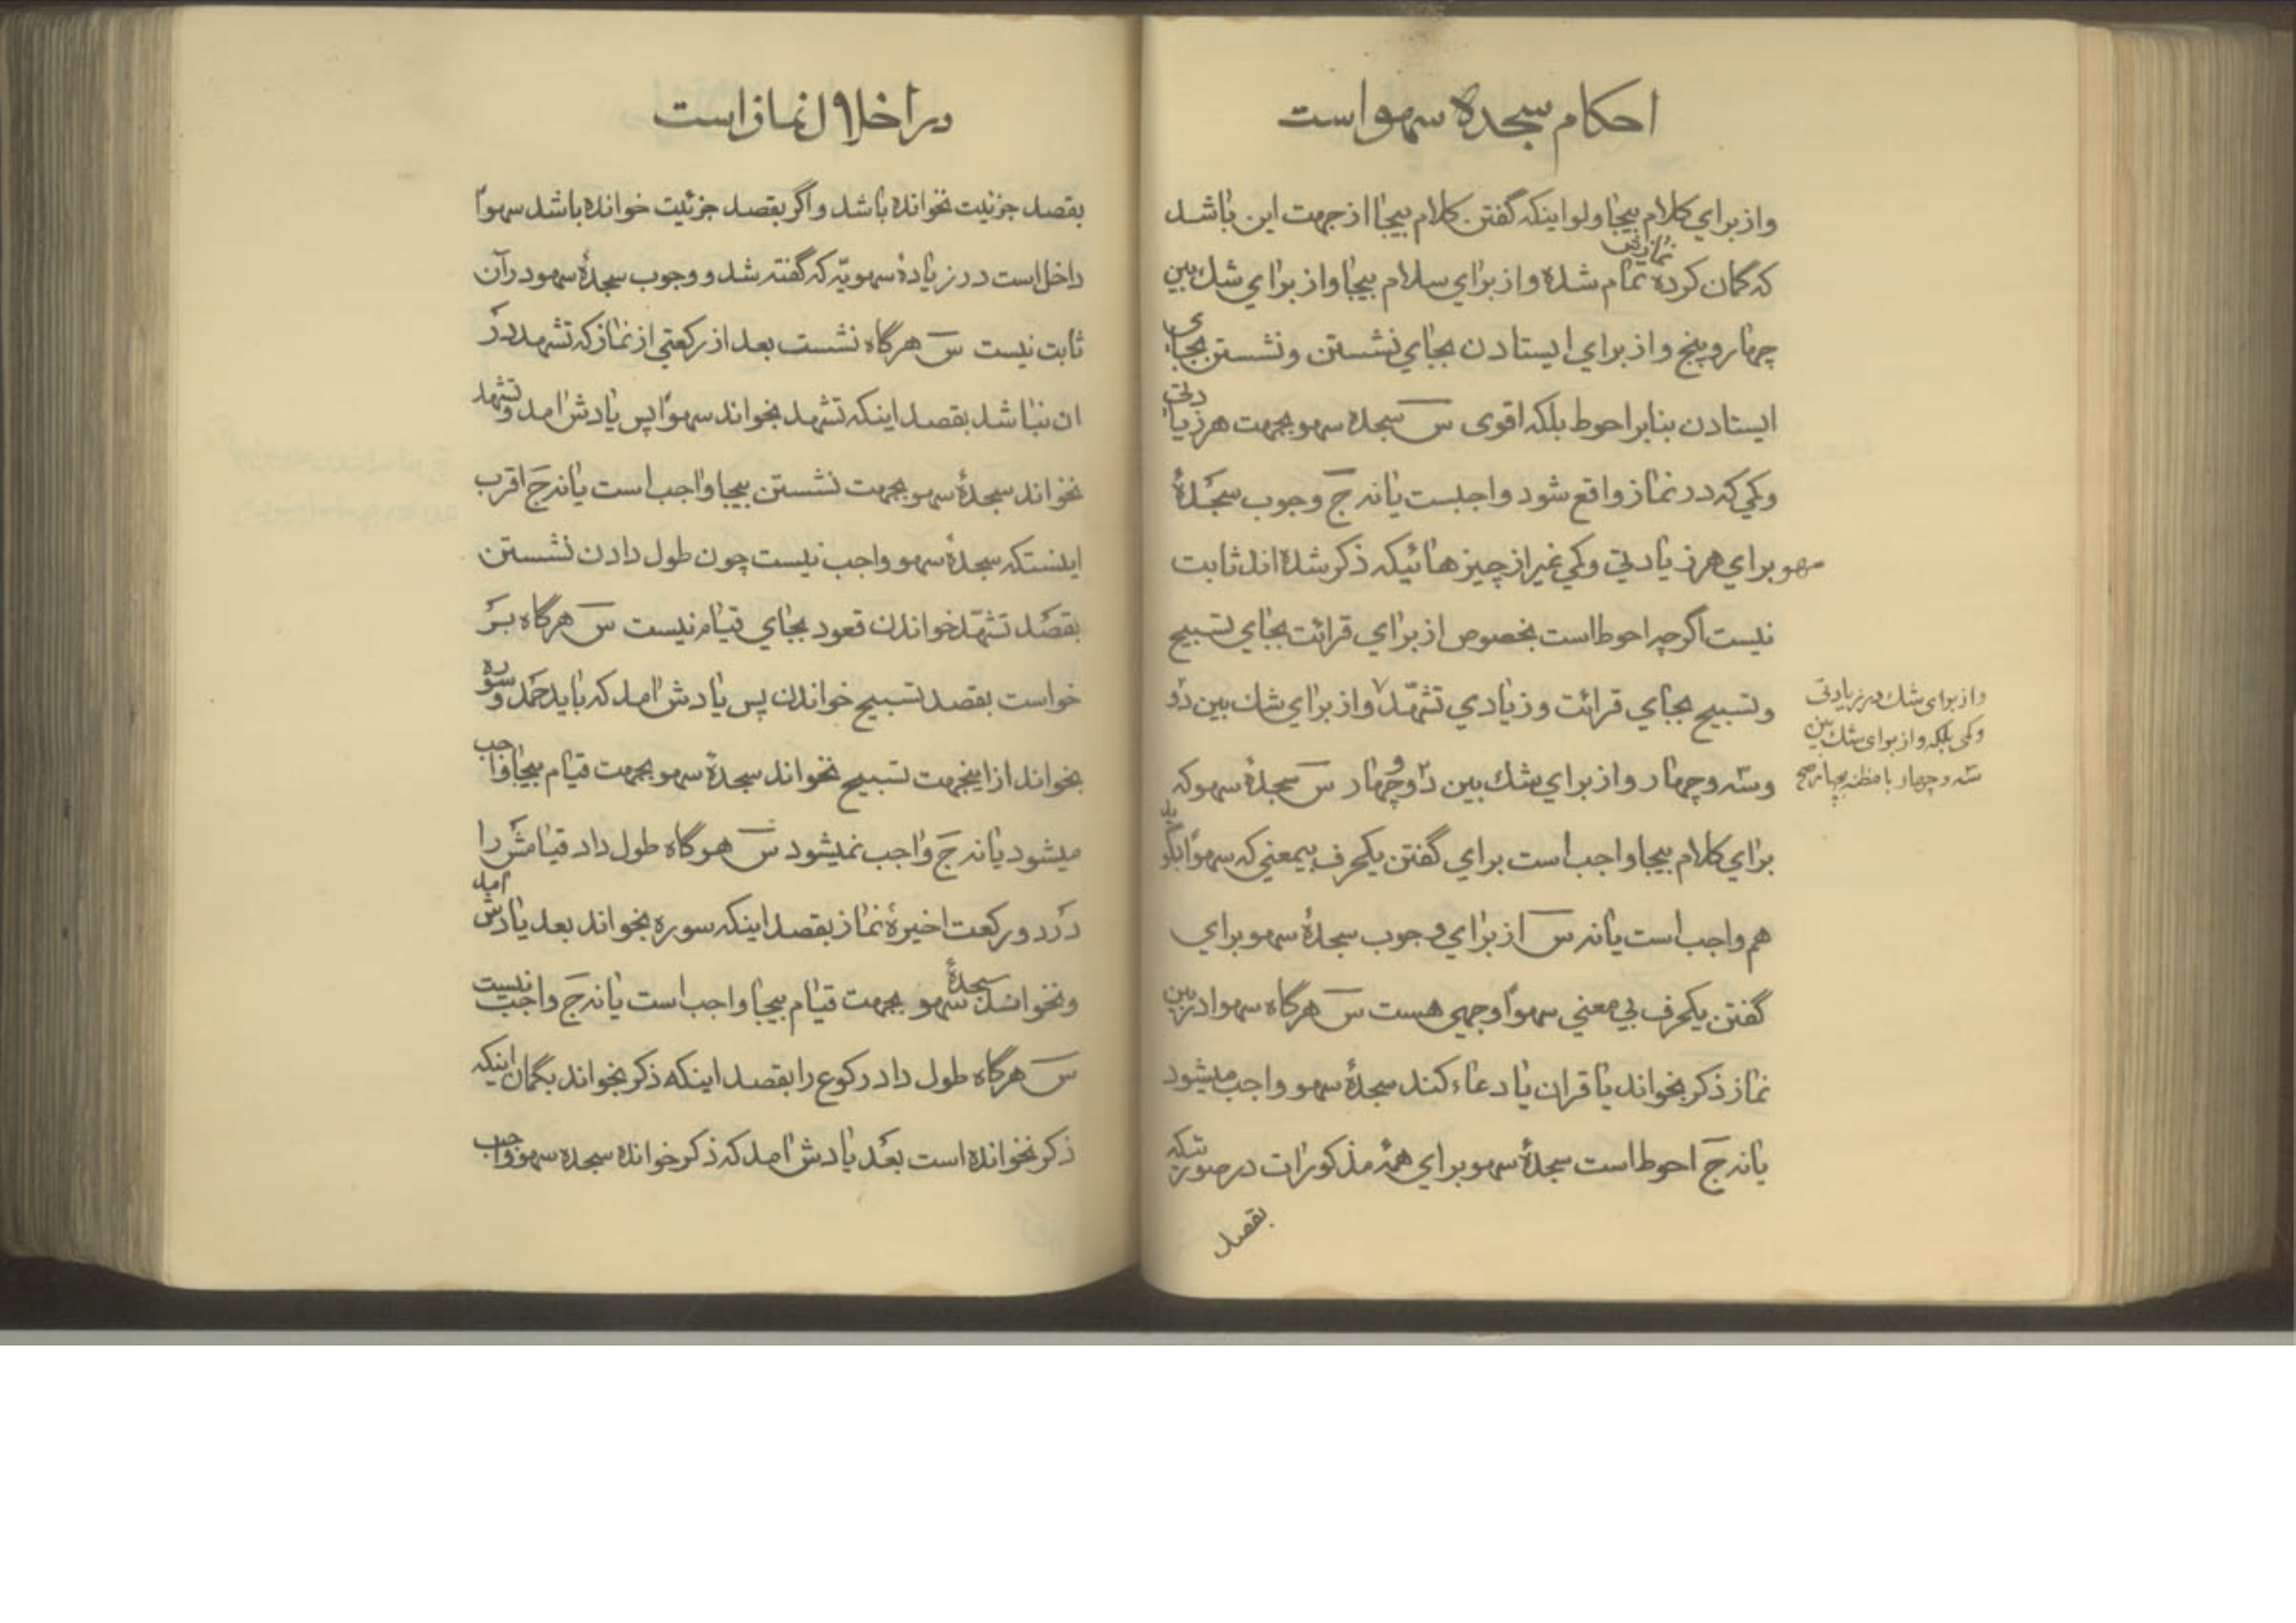 احکام سجده سهو است
واز برای کلام بیجا ولو اینکه گفتن کلام بیجا از جهت این باشد
که گمان کرده نمازش تمام شده واز برای سلام بیجا واز برای شك بین
چهار و پنج واز برای ایستادن بجای نشستن ونشستن بجای
ایستادن بنابر احوط بلکه اقوی س سجده سهو بجهت هر زیادتی
وکمی که در نماز واقع شود واجبست یا نه ج وجوب سجدهٔ
سهو برای هر زیادتی وکمی غیر از چیزهائیکه ذکر شده اند ثابت
نیست اگرچه احوط است بخصوص از برای قرائت بجای تسبیح
وتسبیح بجای قرائت وزیادی تشهّد واز برای شك بین دو
وسه وچهار واز برای شك بین دو وچهار س سجدهٔ سهو که
برای کلام بیجا واجب است برای گفتن یکحرف بیمعنی که سهواً بگوید
هم واجب است یا نه س از برای وجوب سجدهٔ سهو برای
گفتن یکحرف بی معنی سهواً وجهی هست س هرگاه سهوا در بین
نماز ذکر بخواند یا قران یا دعاء کند سجدهٔ سهو واجب میشود
یا نه ج احوط است سجدهٔ سهو برای همهٔ مذکورات در صورتیکه
بقصد
واز برای شك در زیادتی
وکمی بلکه واز برای شك بین
سه وچهار با مظنه بچهار صح
در اخلال نماز است
بقصد جزئیت نخوانده باشد واگر بقصد جزئیت خوانده باشد سهواً
داخل است در زیادهٔ سهویّه که گفته شد و وجوب سجدهٔ سهو در آن
ثابت نیست س هرگاه نشست بعد از رکعتی از نماز که تشهد در
ان نباشد بقصد اینکه تشهد بخواند سهواً پس یادش امد وتشهد
نخواند سجدهٔ سهو بجهت نشستن بیجا واجب است یا نه ج اقرب
اینستکه سجدهٔ سهو واجب نیست چون طول دادن نشستن
بقصد تشهّد خواندن قعود بجای قیام نیست س هرگاه بر
خواست بقصد تسبیح خواندن پس یادش امد که باید حمد وسوره
بخواند از اینجهت تسبیح نخواند سجدهٔ سهو بجهت قیام بیجا واجب
میشود یا نه ج واجب نمیشود س هرگاه طول داد قیامش را
در دو رکعت اخیرهٔ نماز بقصد اینکه سوره بخواند بعد یادش امد
ونخواند سجدهٔ سهو بجهت قیام بیجا واجب است یا نه ج واجب نیست
س هرگاه طول داد رکوع را بقصد اینکه ذکر بخواند بگمان اینکه
ذکر نخوانده است بعد یادش امد که ذکر خوانده سجده سهو واجب